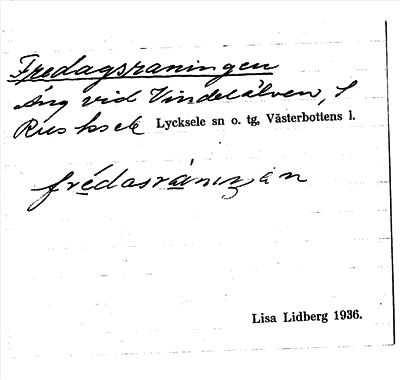 Fredagsraningen
Äng vid Vindelälven, i
Rusksele Lycksele sn o. tg, Västerbottens l.
frédasránıŋan
Lisa Lidberg 1936.